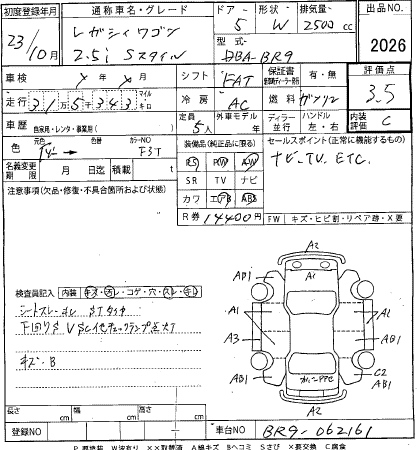 初度登録年月 通称車名・グレード ドア 形状 排気量 出品NO
23/10月 レガシィワゴン 2.5i Sスタイル 5 W 2500 cc
型式 DBA-BR9 2026
車検 年 月 シフト FAT 保証書 有・無 評価点
走行 31万5千343 マイル キロ 冷房 AC 燃料 ガソリン 3.5
車歴 自家用・レンタ・事業用( ) 定員 5人 外車モデル ディーラー 並行 ハンドル 左・右 内装評価 C
色 色番 カラーNO F3T
装備品(純正に限る) セールスポイント(正常に機能する物)
PS PW AW ナビ.TV.ETC.
名義変更期限 月 日 積載 t SR TV ナビ
注意事項(欠品・修復・不具合箇所および状態) カワ エアB ABS
R券 14400円 FW キズ・ヒビ割・リペア跡・X要
A2
A1
AB1 AB1
A1 A1
A3
AB1 C2
AB1
A2
検査員記入 内装 キズ・汚レ・コゲ・穴・スレ・キレ
シートスレ・ヨレ
下回りS
キズ・B
長さ cm 幅 cm 高さ cm
登録NO 車台NO BR9-062161
P要塗装 W波有り XX取替済 A線キズ Bヘコミ Sさび X要交換 C腐食